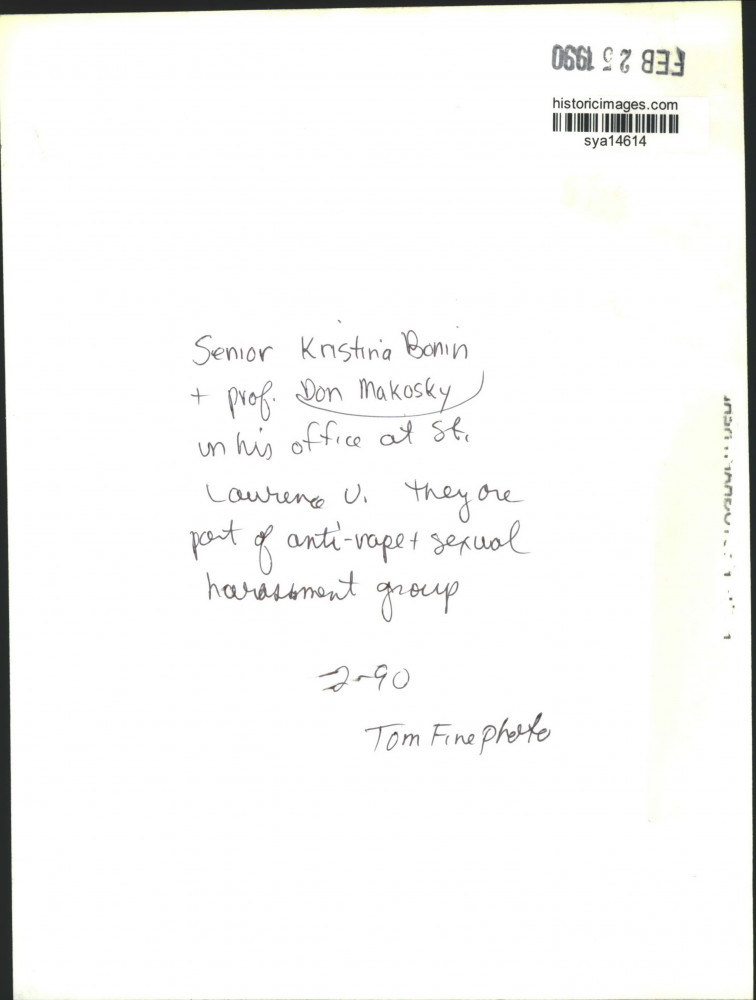 FEB 25 1990
historicimages.com
sya14614
Senior Kristina Bonin
+ prof. Don Makosky
in his office at St.
Lawrence U. they are
part of anti-rape + sexual
harassment group
2-90
Tom Fine photo